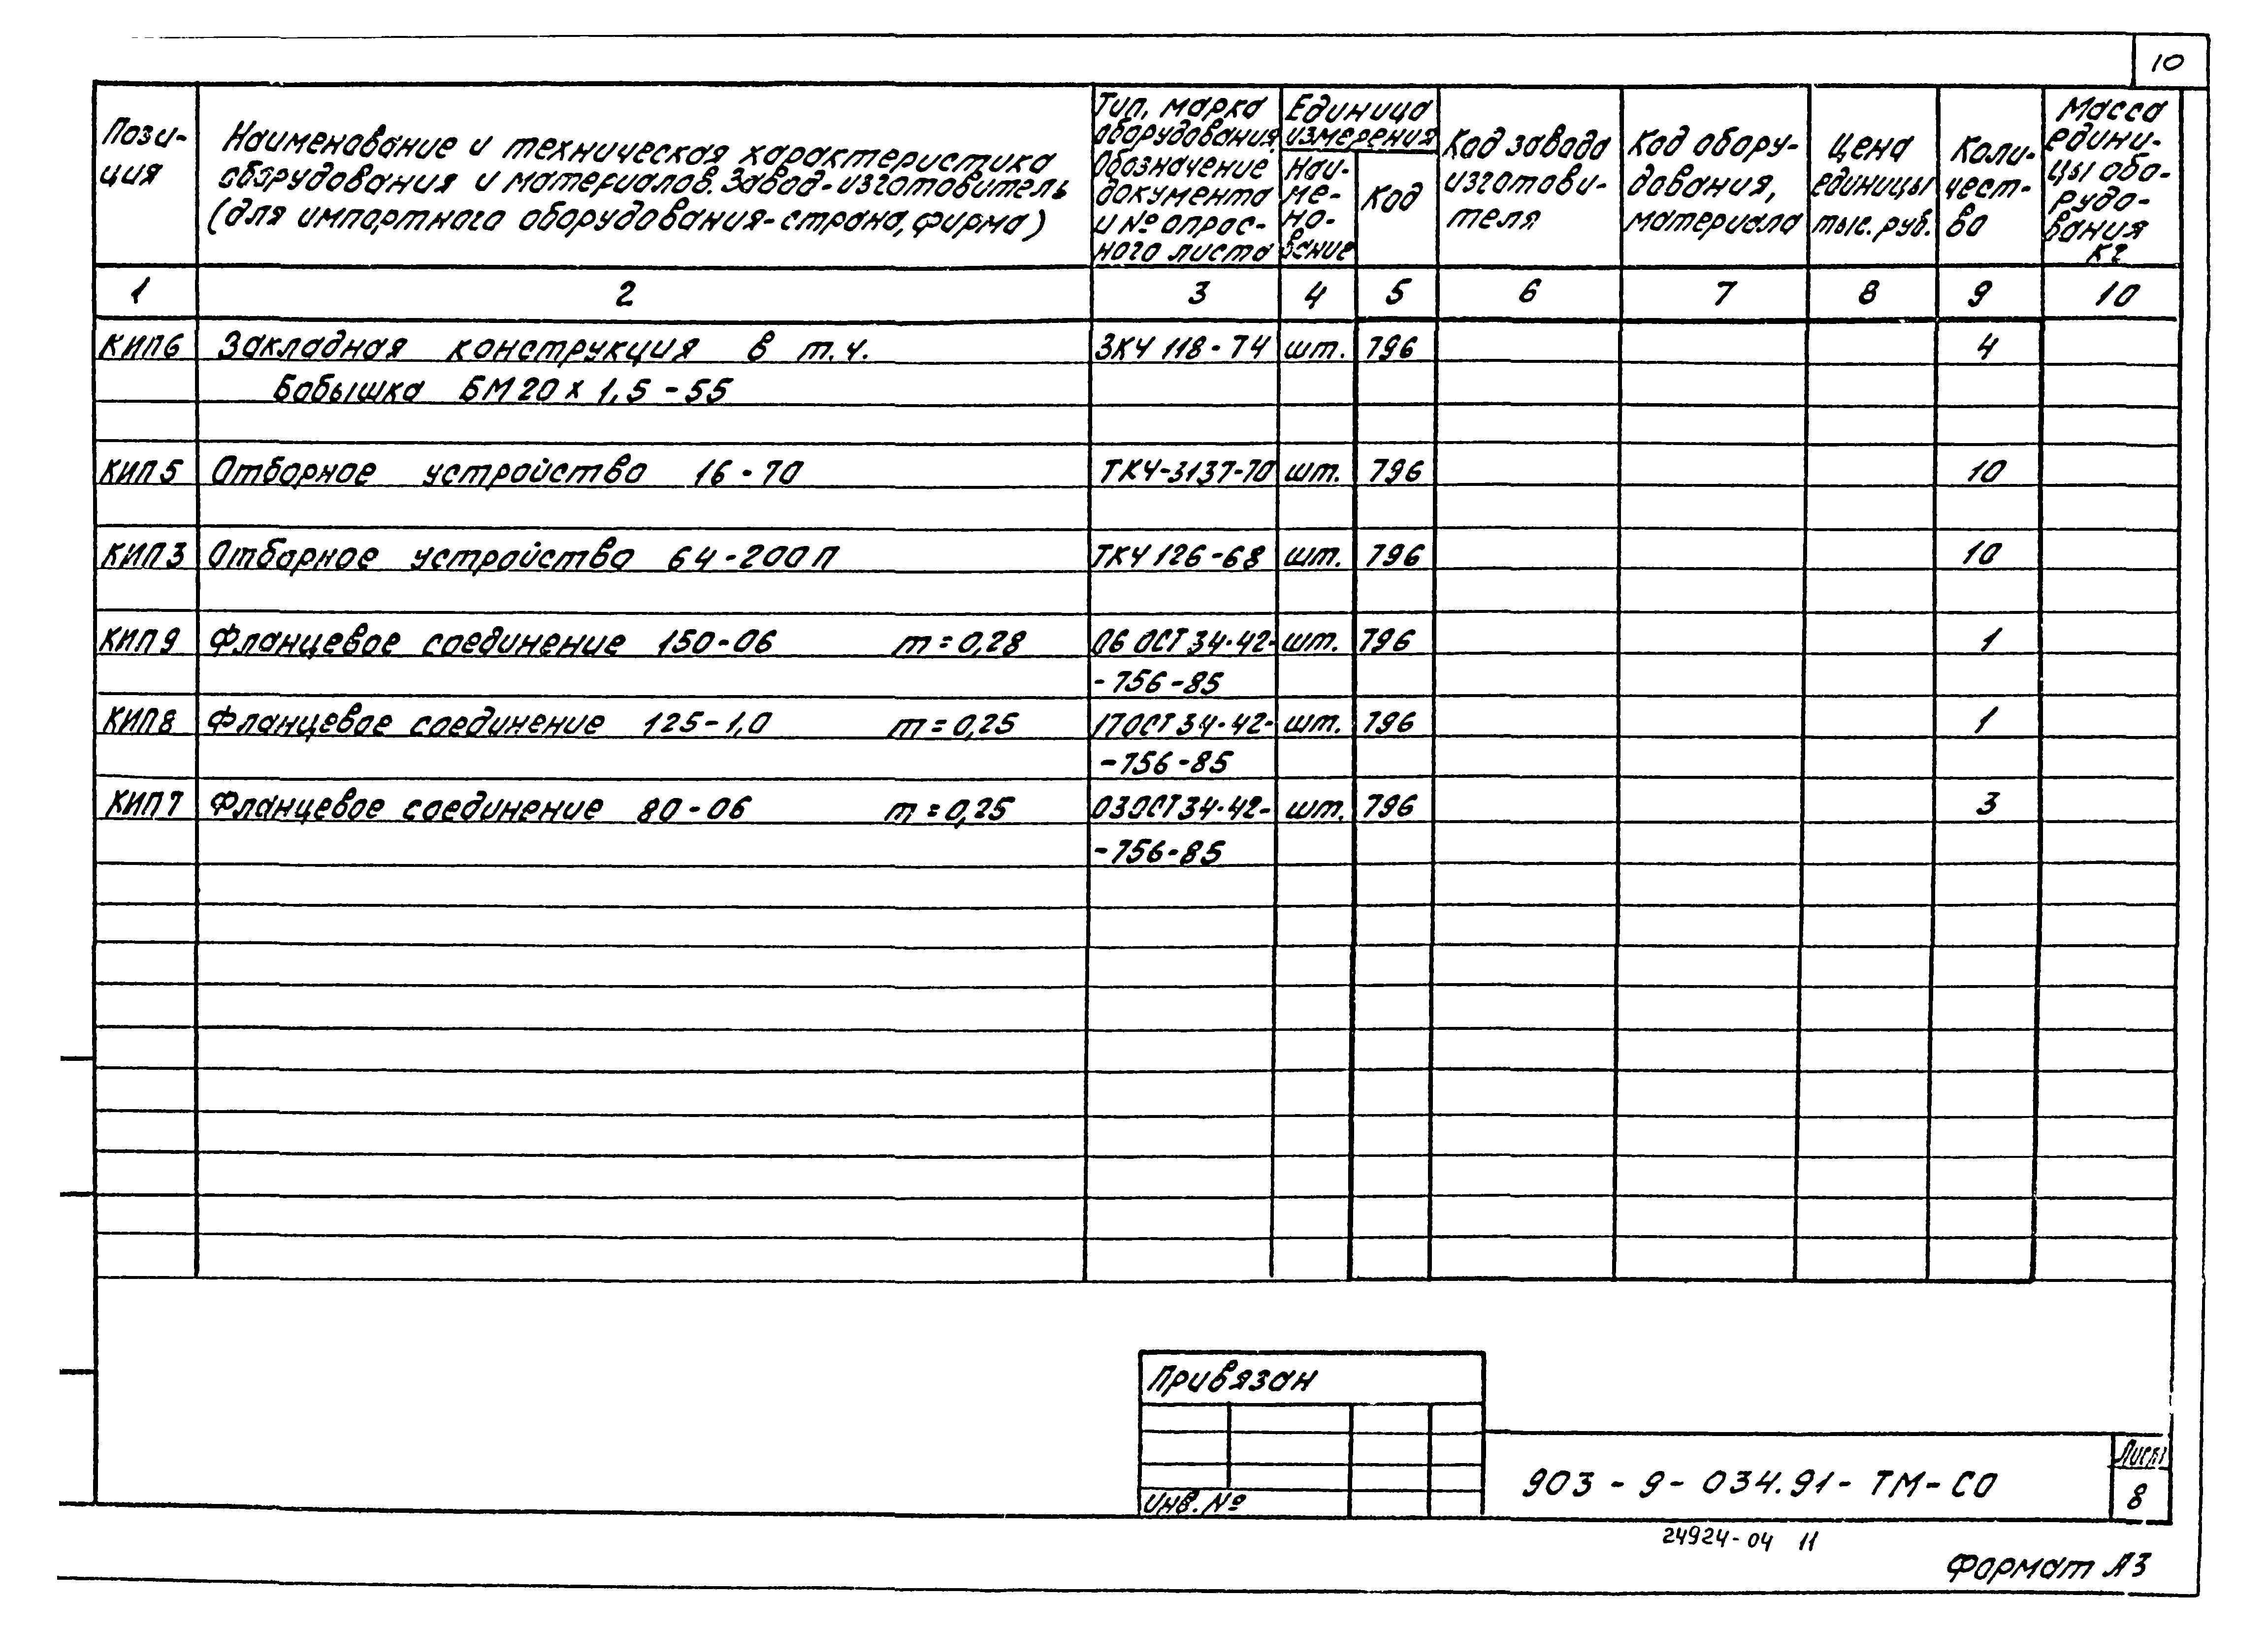 10
Пози-
ция
Наименование и техническая характеристика
оборудования и материалов. Завод-изготовитель
(для импортного оборудования-страна, фирма)
Тип, марка
оборудования
Обозначение
документа
и № опрос-
ного листа
Единица
измерения
наи-
ме-
но-
вание
Код
Код завода
изготови-
теля
Код обору-
дования,
материала
Цена
единицы
тыс. руб.
Коли-
чест-
во
Масса
едини-
цы обо-
рудо-
вания
кг
1 2 3 4 5 6 7 8 9 10
КИП6 Закладная конструкция в т.ч. ЗК4 118-74 шт. 796 4
Бобышка БМ20х1,5-55
КИП5 Отборное устройство 16-70 ТК4-3137-70 шт. 796 10
КИП3 Отборное устройство 64-200П ТК4 126-68 шт. 796 10
КИП9 Фланцевое соединение 150-06 m=0,28 06 ОСТ 34-42- шт. 796 1
-756-85
КИП8 Фланцевое соединение 125-1,0 m=0,25 17ОСТ 34-42- шт. 796 1
-756-85
КИП7 Фланцевое соединение 80-06 m=0,25 03ОСТ34-42- шт. 796 3
-756-85
Привязан
Инв. №
903-9-034.91-ТМ-СО
Лист
8
24924-04 11
Формат А3